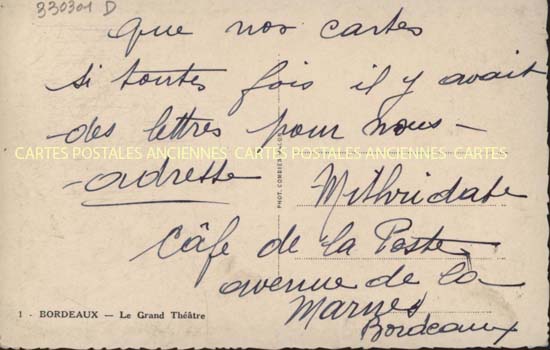 330301 D
que nos cartes
si toutes fois il y avait
des lettres pour nous -
CARTES POSTALES ANCIENNES CARTES POSTALES ANCIENNES CARTES
- adresse Mithridate
Câfe de la Poste
avenue de la
Marnes
Bordeaux
PHOT. COMBIER
1 - BORDEAUX — Le Grand Théâtre